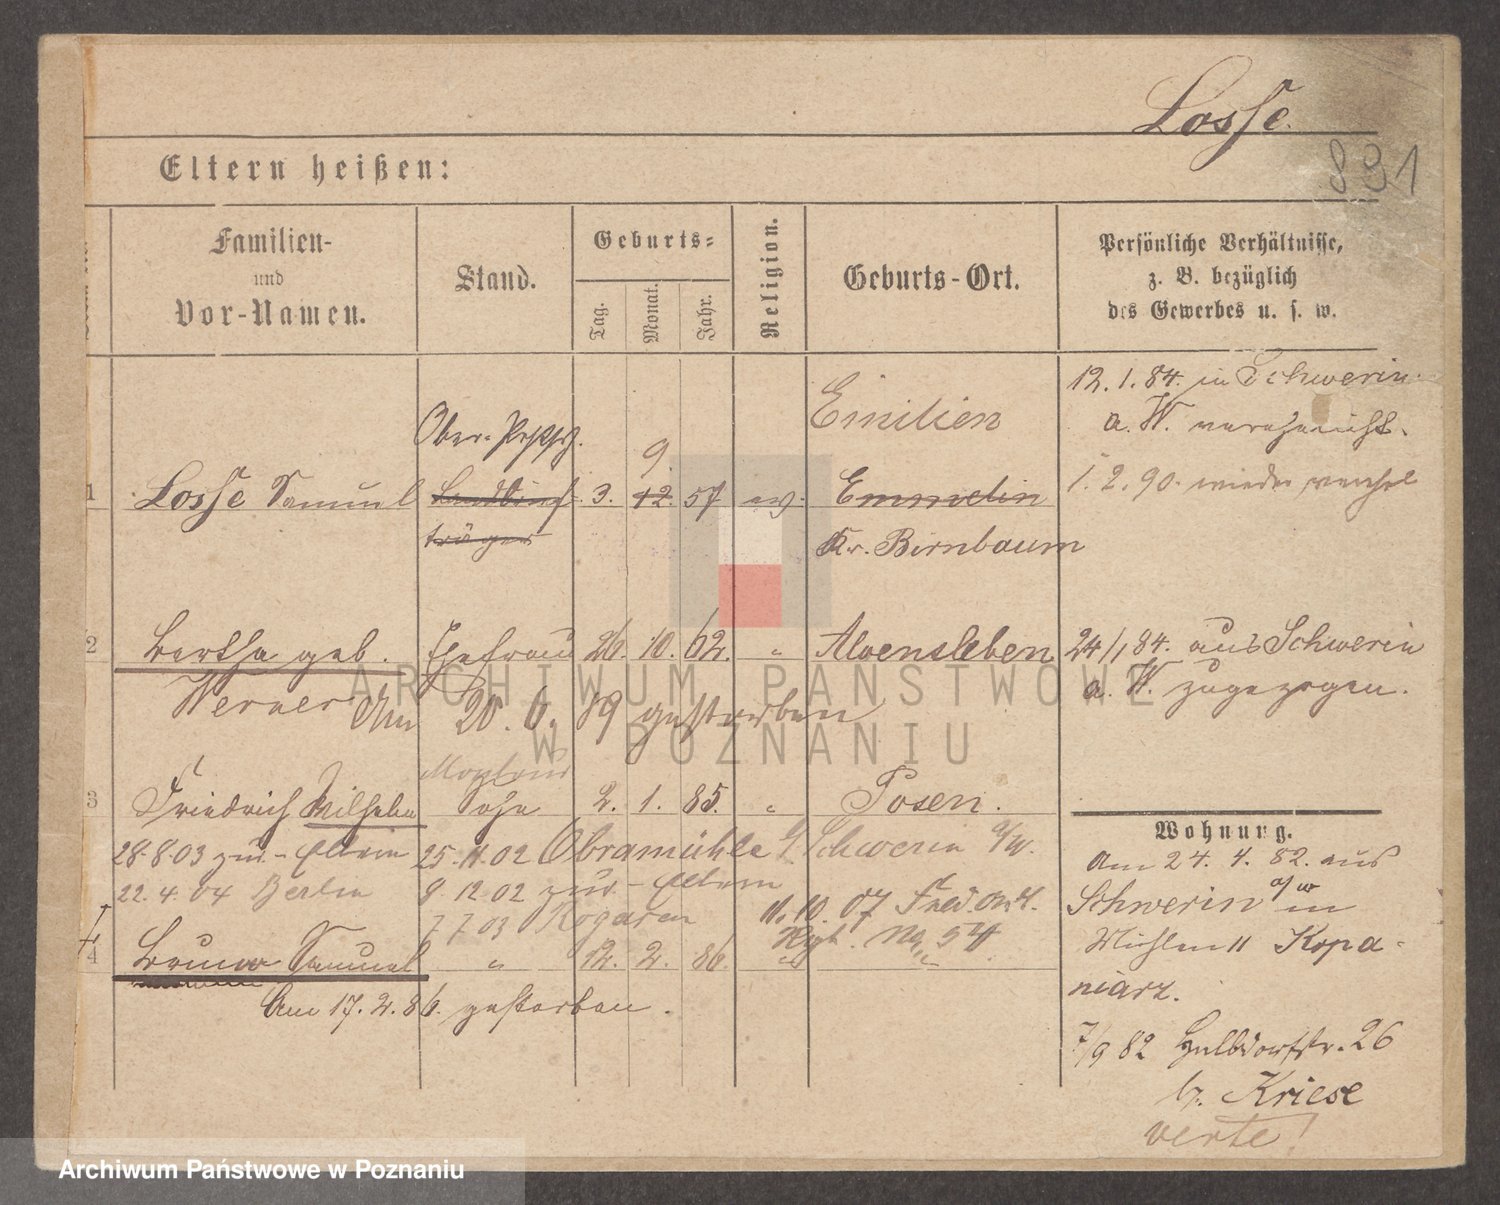 Losse.
891
Eltern heißen:
Familien-
und
Vor-Namen.
Stand.
Geburts-
Tag.
Monat.
Jahr.
Religion.
Geburts-Ort.
Persönliche Verhältnisse,
z. B. bezüglich
des Gewerbes u. s. w.
12. 1. 84. in Schwerin
a. W. verehelicht.
1. 2. 90. wieder verehel
Emilien
Ober-Postsch.
9
1 Losse Samuel Landbrief- 3. 12. 57 ev. Emmelin
träger
Kr. Birnbaum
2 Bertha geb. Ehefrau 26. 10. 62. " Alvensleben
Werner Am 20. 6. 89 gestorben
24/1 84. aus Schwerin
a. W. zugezogen.
3 Friedrich Wilhelm Sohn 2. 1. 85. " Posen.
28.8.03 zur. Eltern 25.11.02 Obramühle b/ Schwerin a/W.
22.4.04 Berlin 9.12.02 zur. Eltern
7.7.03 Rogasen
11. 10. 07
54
4 Bruno Samuel " 12. 2. 86. " "
Am 17. 2. 86. gestorben.
Wohnung.
Am 24. 4. 82. aus
Schwerin a/W in
Mühlen 11 Kopa-
niarz.
7/9 82 Halbdorfstr. 26
b. Kriese
verte!
ARCHIWUM PAŃSTWOWE
W POZNANIU
Archiwum Państwowe w Poznaniu